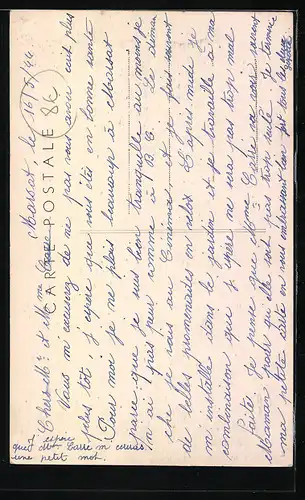 Marsat, le 16/5/44
86
CARTE POSTALE
Chers Mr et Mme
Vous m'excuserez de ne pas vous avoir ecrit plus
plus tôt, j'espère que vous êtes en bonne santé
Pour moi je me plais beaucoup à Marsat
parce que je suis bien tranquille au moins je
n'ai pas peur comme à B. C. Le diman-
che je vais au Cinéma, et je fais souvent
de belles promenades en vélo. L'après midi je
m'installe dans le jardin et je travaille à ma
combinaison que j'espère ne sera pas trop mal
faite. Je pense que Mme Carre va voir souvent
Maman pour qu'elle soit pas trop seule. Je termine
ma petite carte en vous embrassant bien fort tous les deux
J'espère
que Mme Carre m'
une petit mot.